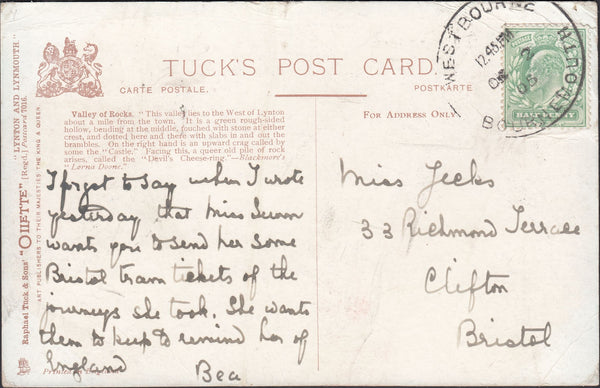 TUCK'S POST CARD.
CARTE POSTALE.
POSTKARTE
"LYNTON AND LYNMOUTH"
Raphael Tuck & Sons' "OILETTE" [Regd.] Postcard 7016.
ART PUBLISHERS TO THEIR MAJESTIES THE KING & QUEEN
Valley of Rocks. "This valley lies to the West of Lynton
about a mile from the town. It is a green rough-sided
hollow, bending at the middle, touched with stone at either
crest, and dotted here and there with slabs in and out the
brambles. On the right hand is an upward crag called by
some the "Castle." Facing this, a queer old pile of rock
arises, called the "Devil's Cheese-ring."—Blackmore's
"Lorna Doone."
FOR ADDRESS ONLY.
WESTBOURNE
12.45 PM
BOURNEMOUTH
HALF PENNY
I forgot to say when I wrote
yesterday that Miss
wants you to send her some
Bristol tram tickets of the
journeys she took. She wants
them to keep to remind her of
England
Bea
Printed in
Miss Jecks
33 Richmond Terrace
Clifton
Bristol